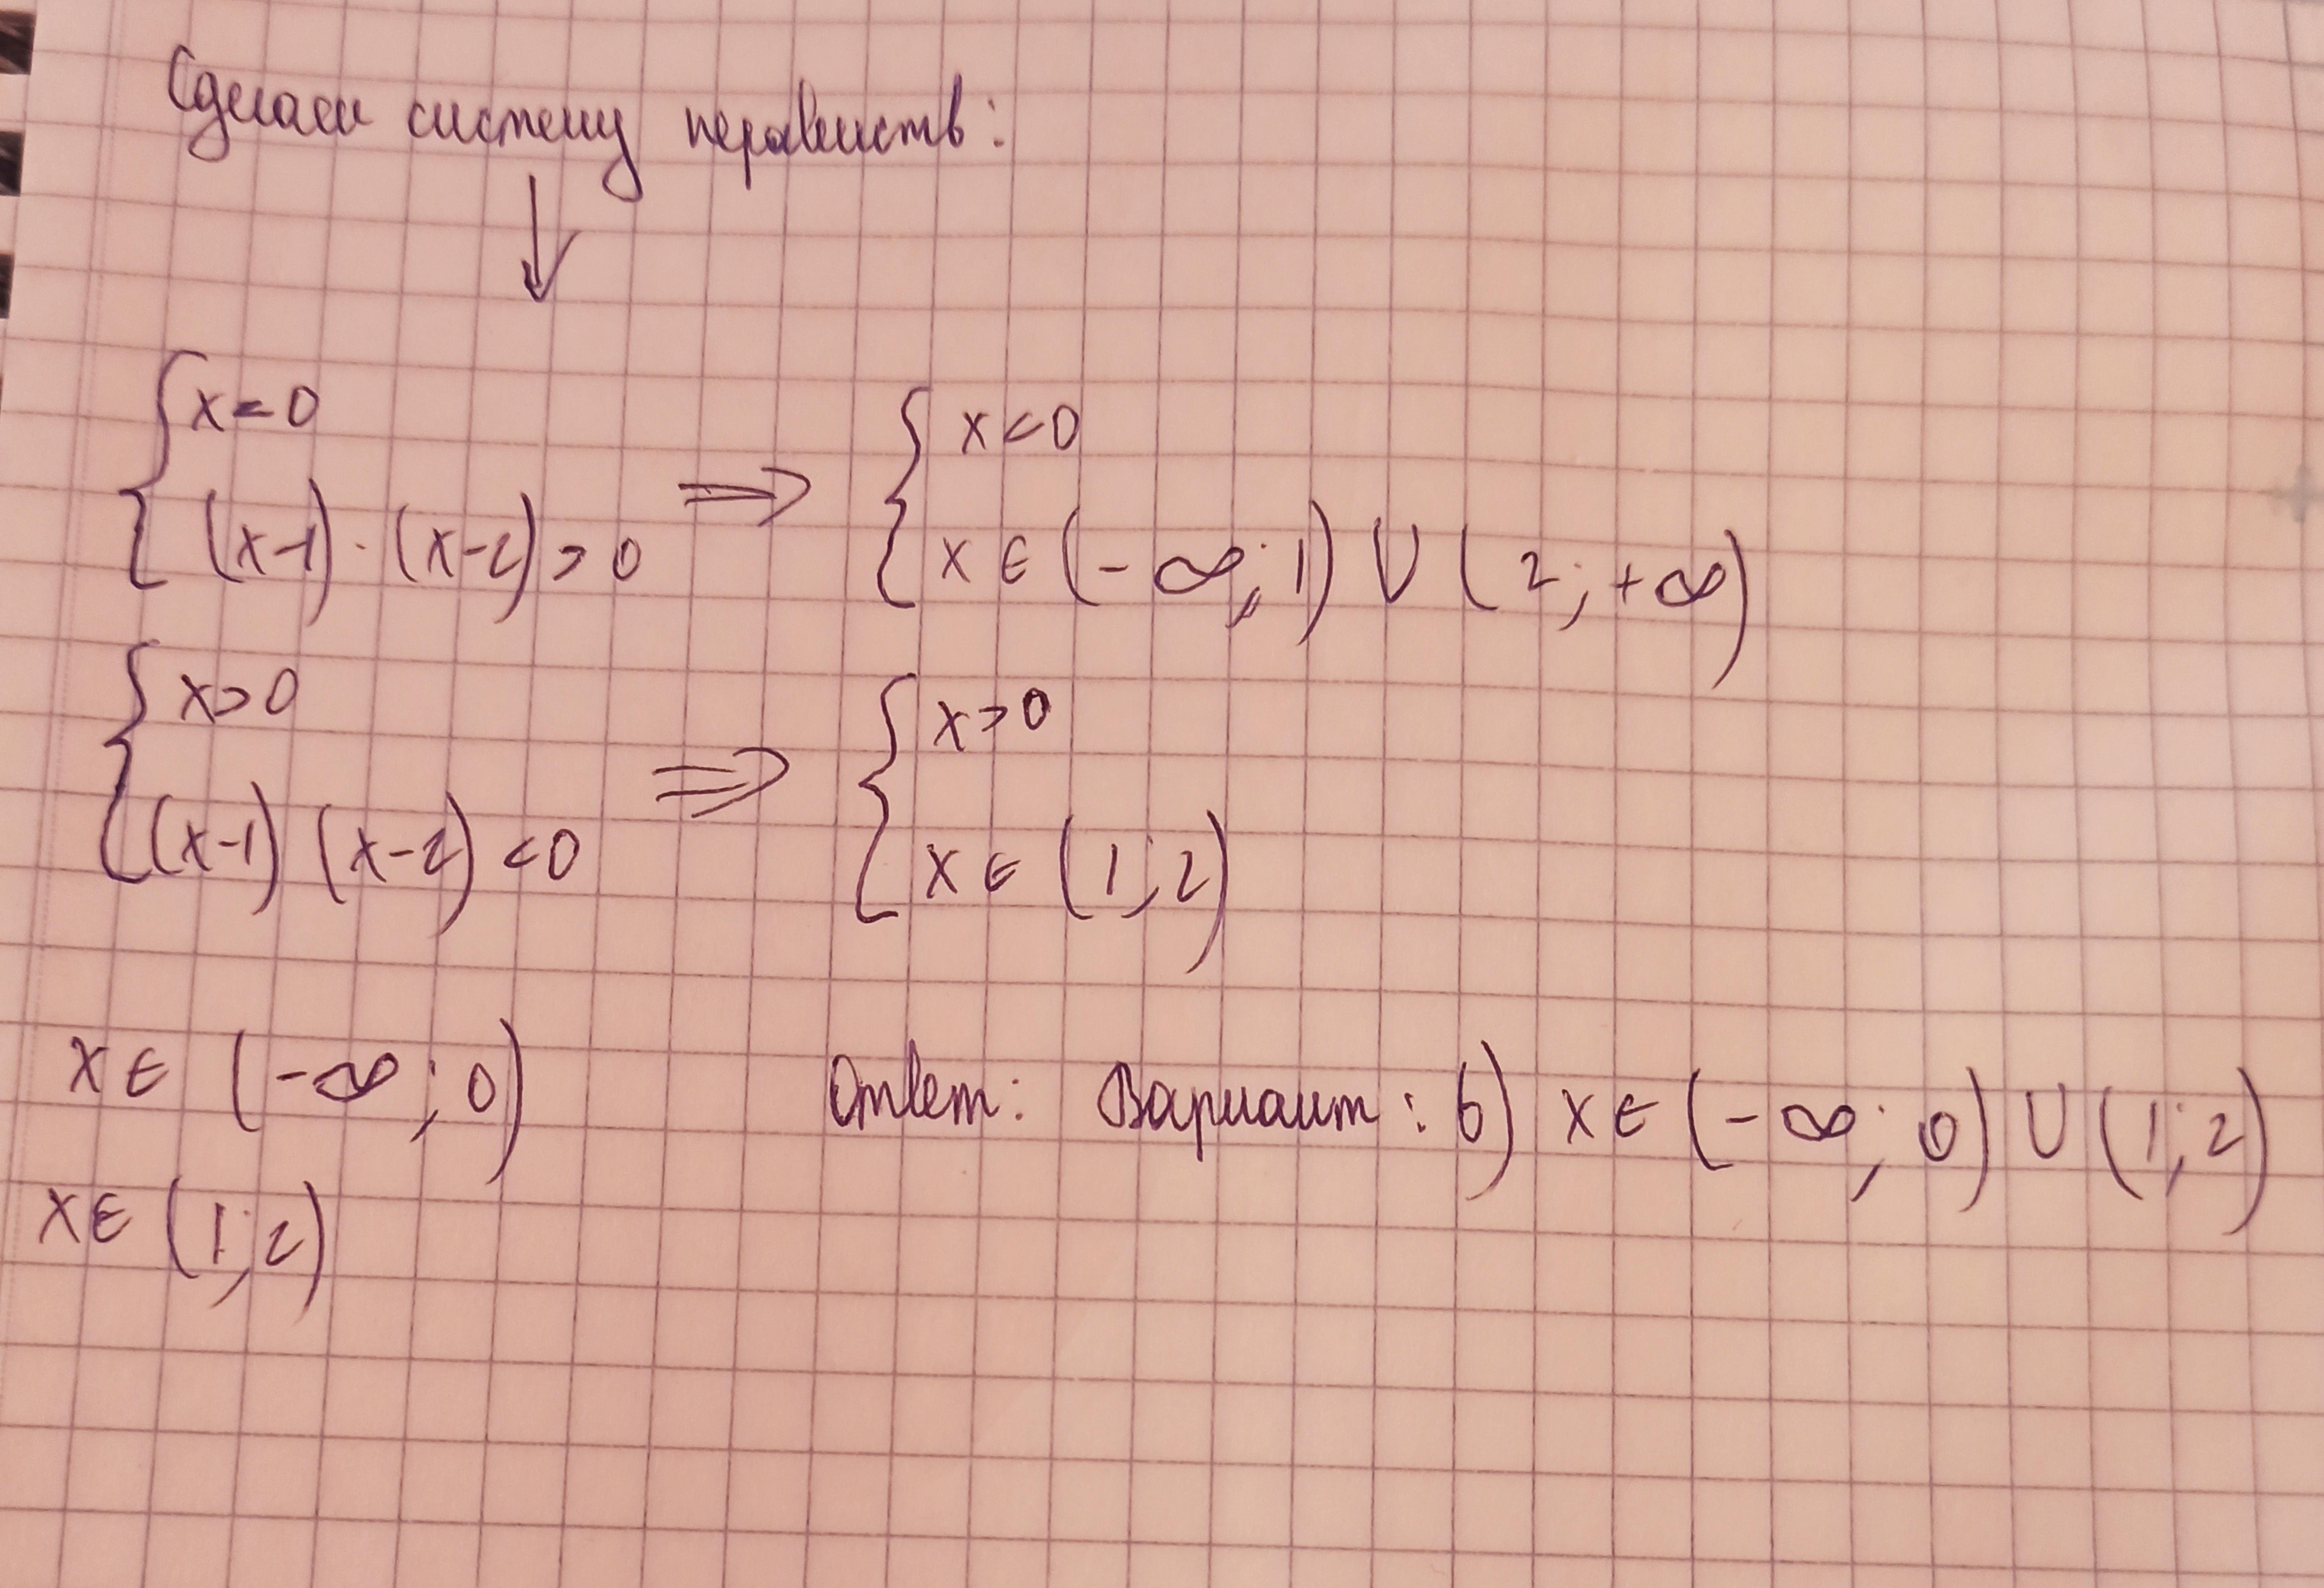 Сделаем систему неравенств:
↓
{ x < 0
(x-1) · (x-2) > 0
⇒ { x < 0
x ∈ (-∞; 1) ∪ (2; +∞)
{ x > 0
(x-1) (x-2) < 0
⇒ { x > 0
x ∈ (1; 2)
x ∈ (-∞; 0)
x ∈ (1; 2)
Ответ: Вариант: б) x ∈ (-∞; 0) ∪ (1; 2)